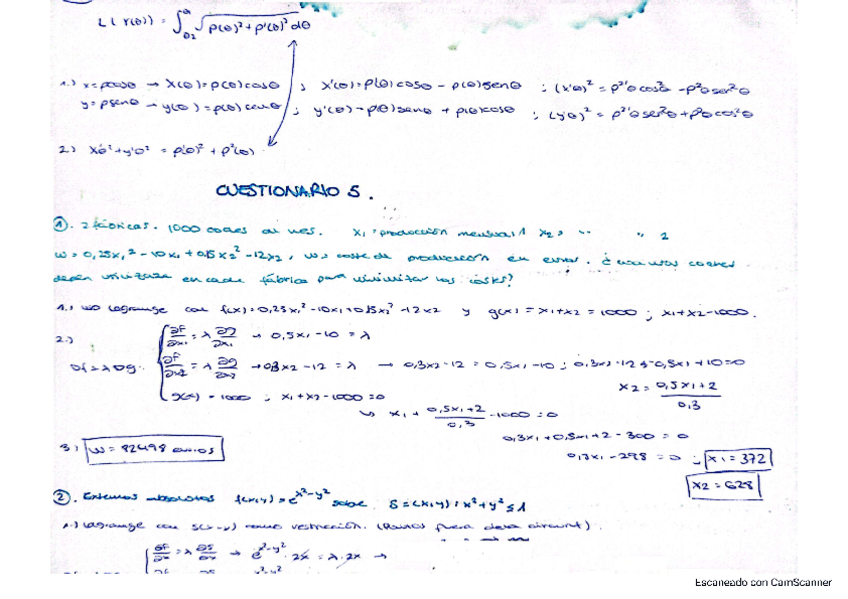 L(r(θ)) = ∫ √(ρ(θ)² + ρ'(θ)²) dθ
1.) x = ρcosθ → x(θ) = ρ(θ)cosθ ; x'(θ) = ρ'(θ)cosθ - ρ(θ)senθ ; (x'θ)² = ρ²'θcos²θ - ρ²θsen²θ
y = ρsenθ → y(θ) = ρ(θ) senθ ; y'(θ) = ρ'(θ)senθ + ρ(θ)cosθ ; (y'θ)² = ρ²'θsen²θ + ρ²θcos²θ
2.) x'θ² + y'θ² = ρ'(θ)² + ρ²(θ)
CUESTIONARIO 5.
①. 2 fábricas. 1000 coches al mes. x₁ = producción mensual 1 x₂ = " " 2
w = 0,25x₁² - 10x₁ + 0,15x₂² - 12x₂, w = coste de producción en euros. ¿cuántos coches
deben en cada fábrica para minimizar los costes?
1.) Lagrange con f(x) = 0,25x₁² - 10x₁ + 0,15x₂² - 12x₂ y g(x) = x₁ + x₂ = 1000 ; x₁ + x₂ - 1000.
2.) ∂F/∂x₁ = λ ∂g/∂x₁ → 0,5x₁ - 10 = λ
∇f = λ∇g. ∂F/∂x₂ = λ ∂g/∂x₂ → 0,3x₂ - 12 = λ → 0,3x₂ - 12 = 0,5x₁ - 10 ; 0,3x₂ - 12 - 0,5x₁ + 10 = 0
x₂ = (0,5x₁ + 2)/0,3
g(x) = 1000 ; x₁ + x₂ - 1000 = 0
↳ x₁ + (0,5x₁ + 2)/0,3 - 1000 = 0
0,3x₁ + 0,5x₁ + 2 - 300 = 0
3) w = 82498 euros
- 298 = 0 ; x₁ = 372
x₂ = 628
②. Extremos absolutos f(x,y) = e^(x²-y²) sobre S = (x,y) : x² + y² ≤ 1
1.) Lagrange con como restricción. (Puntos fuera de la circunf).
∂F/∂x = λ ∂S/∂x → e^(x²-y²) · 2x = λ · 2x →
Escaneado con CamScanner